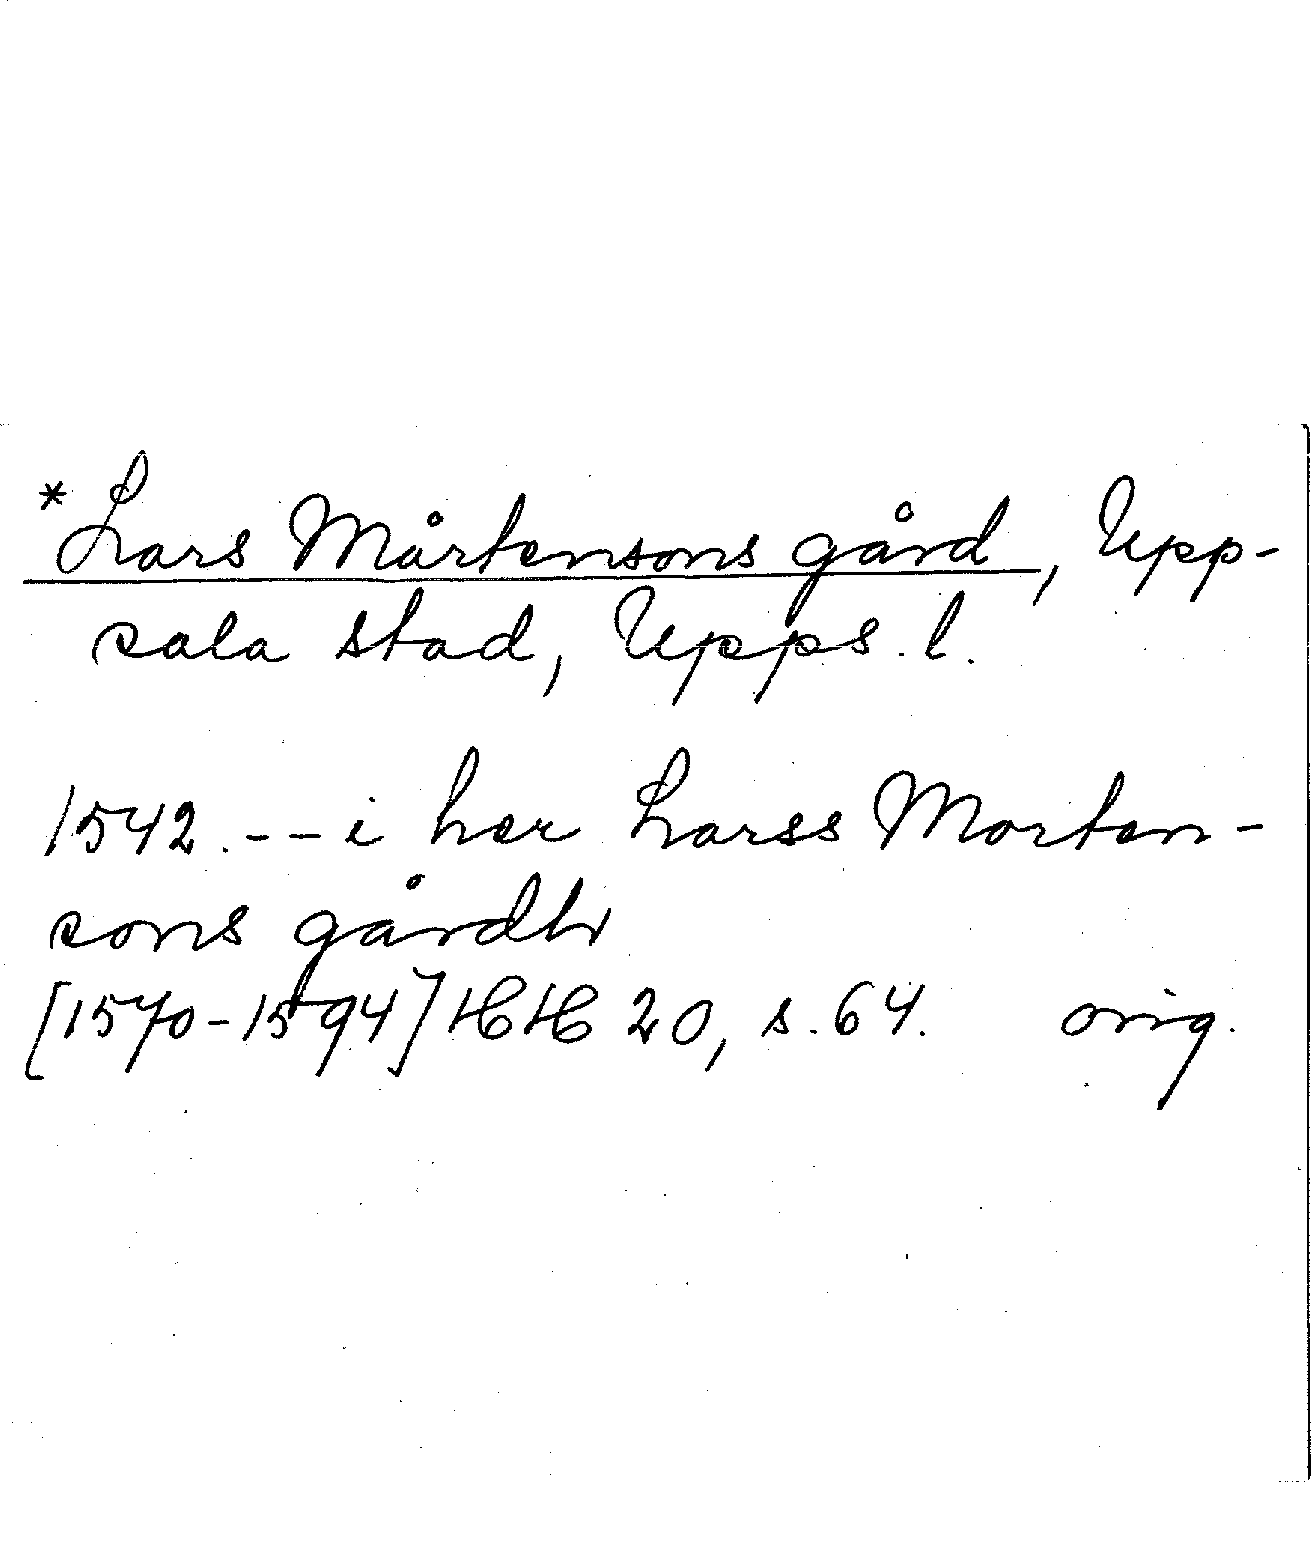 *Lars Mårtensons gård, Upp-
sala stad, Upps. l.
1542. -- i her Larss Morten-
sons gårdh
[1570-1594] HH 20, s. 64. orig.